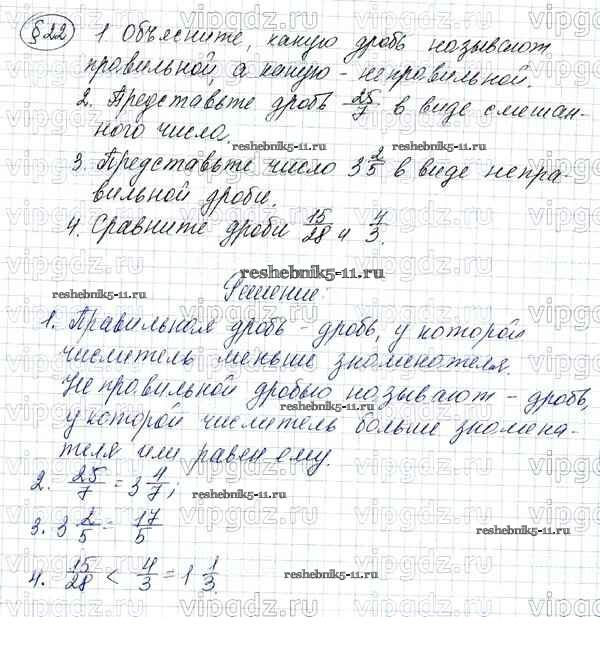 §22 1 Объясните, какую дробь называют
правильной, а какую - неправильной.
2. Представьте дробь 25/7 в виде смешан-
ного числа.
reshebnik5-11.ru
3. Представьте число 3 2/5 в виде непра-
вильной дроби.
4. Сравните дроби 15/28 и 4/3.
reshebnik5-11.ru
Решение:
reshebnik5-11.ru
1. Правильная дробь - дробь, у которой
числитель меньше знаменателя.
Неправильной дробью называют - дробь,
reshebnik5-11.ru
у которой числитель больше знамена-
теля или равен ему.
2. 25/7 = 3 4/7;
reshebnik5-11.ru
3. 3 2/5 = 17/5
4. 15/28 < 4/3 = 1 1/3.
reshebnik5-11.ru
vipgdz.ru